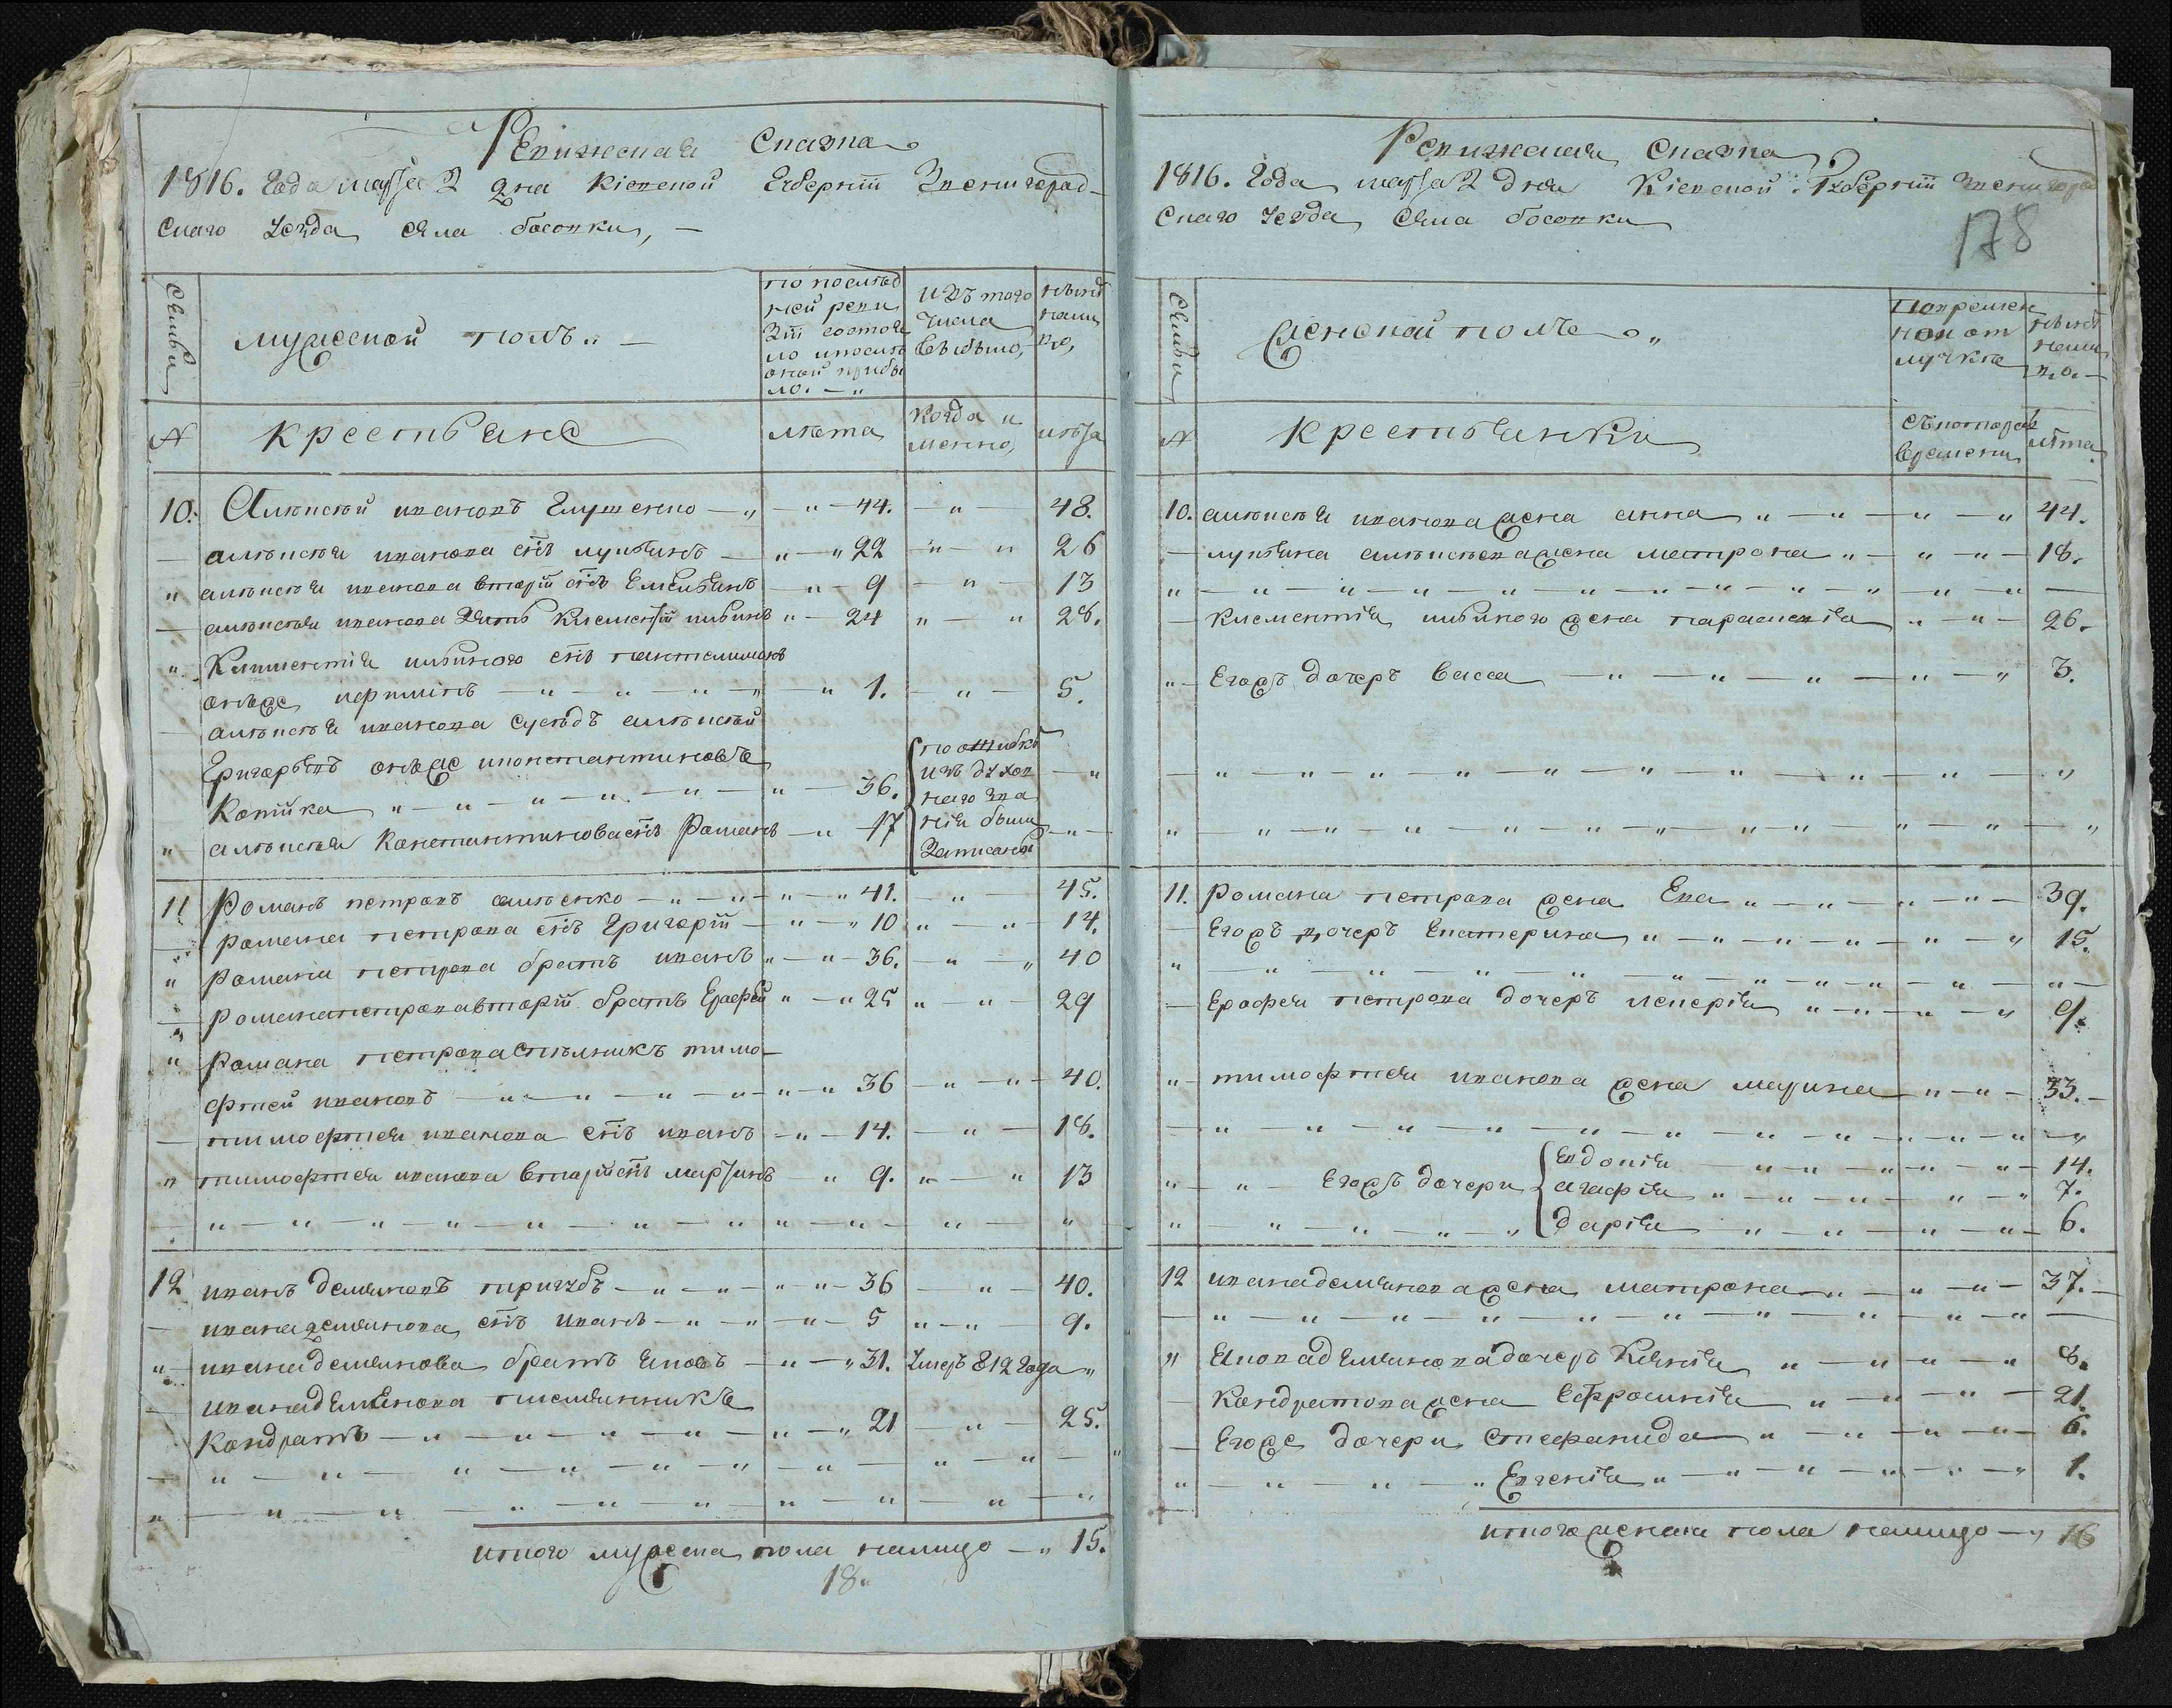 Ревижская Сказка
1816. Года марта 2 дня Кіевской Губерніи Звенигород-
скаго Уезда села босовки, —
Семьи
мужеской полъ
по послед
ней реви
зіи состоя
ло и после
оной прибы
ло. —
изъ того
числа
выбыло,
ныне
нали
цо,
№
крестьяне
лета
когда и
менно,
лета
10. Алексей ивановъ Глущенко — 44. — 48.
алексея иванова снъ лукьянъ — 22 — 26
алексея иванова вторій снъ Емельянъ — 9 — 13
алексея иванова зять Климентій — 24 — 28.
Климентія снъ пантелимонъ
онже — 1. — 5.
алексея иванова суседъ алексей
Григорьевъ онже иконстантиновъ
Котика — 36.
алексея Константинова снъ Романъ — 17
по ошибке
изъ духов
наго зва
нія были
Записаны
11 Романъ петровъ — 41. — 45.
романа петрова снъ Григорій — 10 — 14.
романа петрова братъ иванъ — 36. — 40
романа петрова вторій братъ Ерофей — 25 — 29
Романа петрова тимо-
фтей ивановъ — 36 — 40.
тимофтея иванова снъ иванъ — 14. — 18.
тимофтея иванова вторій снъ мартинъ — 9. — 13
12 иванъ демяновъ — 36 — 40.
ивана демянова снъ иванъ — 5 — 9.
ивана демянова братъ яковъ — 31. умеръ 812 года
ивана демянова племянникъ
Кондратъ — 21 — 25.
итого мужеска пола налицо — 15.
18.
Ревижская Сказка
1816. Года марта 2 дня Кіевской Губерніи Звенигород
скаго Уезда села босовки
178
Семьи
Женской полъ
Во временной отлучке
ныне
нали
цо. —
№
крестьянки
съ котораго
времени
лета
10. алексея иванова жена анна — 44.
лукьяна алексеева жена матрона — 18.
климентія жена параскевія — 26.
Егожъ дочеръ васса — 3.
11. романа петрова жена Ева — 39.
Егожъ дочеръ Екатерина — 15.
Ерофея петрова дочеръ — 9.
тимофтея иванова жена марина — 33. —
Егожъ дочери Евдокія — 14.
агафія — 7.
дарія — 6.
12 ивана демянова жена матрона — 37. —
якова демянова дочеръ Ксенія — 8.
Кондратова жена Ефросинія — 21.
Егоже дочери стефанида — 6.
Евгенія — 1.
итого женска пола налицо — 16